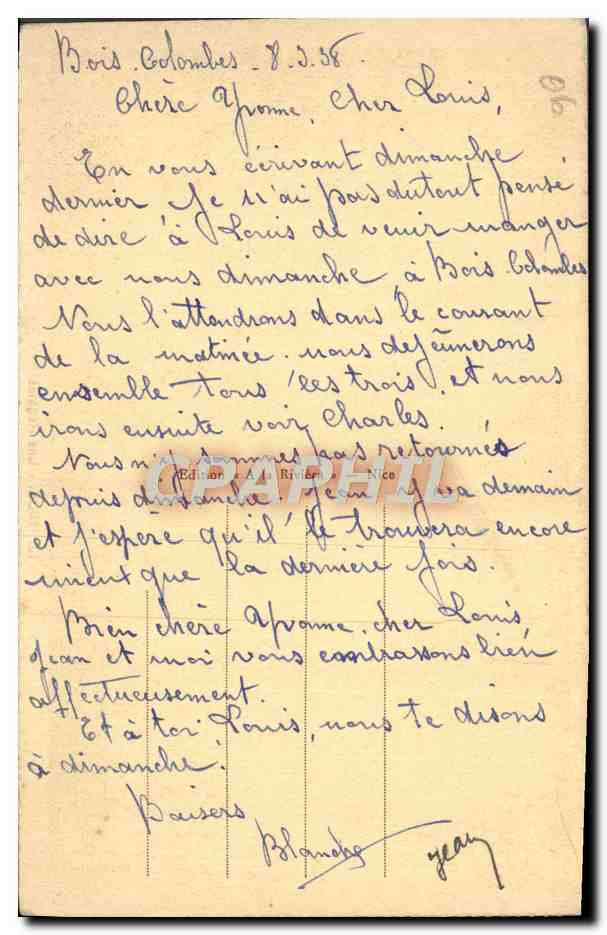 Bois-Colombes - 8.3.38.
06
Chère Yvonne, Cher Louis,
En vous écrivant dimanche
dernier je n'ai pas du tout pensé
de dire à Louis de venir manger
avec nous dimanche à Bois Colombes
Nous l'attendrons dans le courant
de la matinée. nous dejeûnerons
ensemble tous les trois, et nous
irons ensuite voir Charles.
Nous n'y sommes pas retournés
Edition A la Rivièra Nice
CPAPHIL
depuis dimanche, Jean y va demain
et j'espère qu'il le trouvera encore
mieux que la dernière fois.
Bien chère Yvonne, cher Louis,
Jean et moi vous embrassons bien
affectueusement.
Et à toi Louis, nous te disons
à dimanche.
Baisers
Blanche Jean